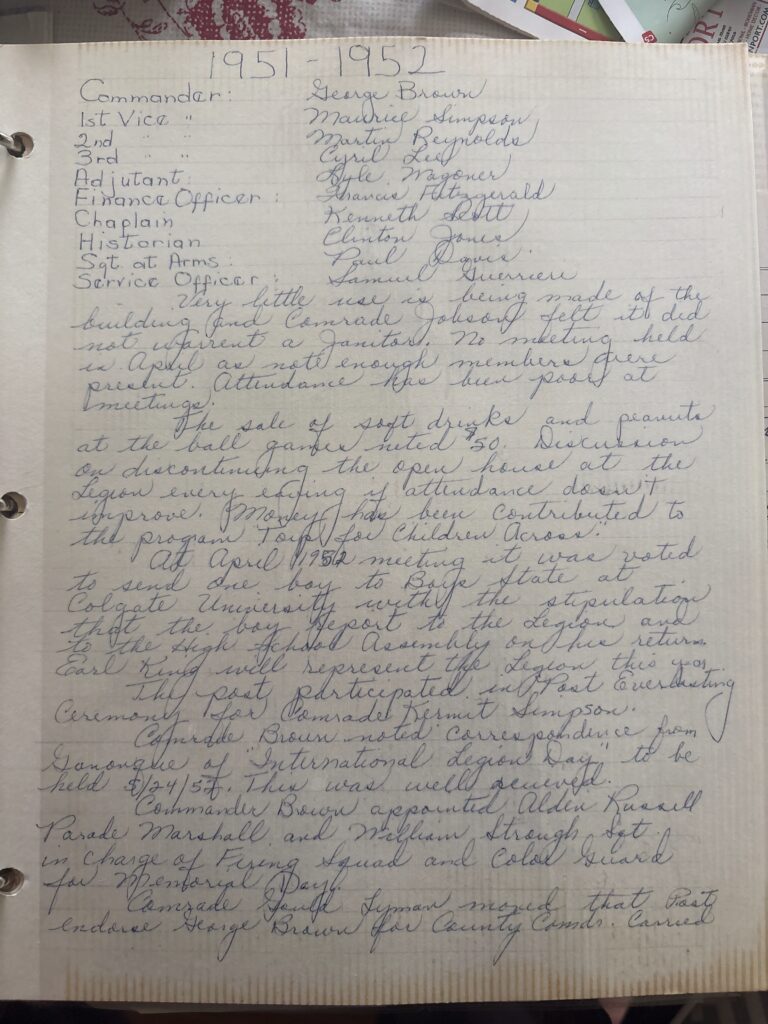 1951-1952
Commander: George Brown
1st Vice " Maurice Simpson
2nd " " Martin Reynolds
3rd " " Cyril Lee
Adjutant: Lyle Wagoner
Finance Officer: Francis Fitzgerald
Chaplain Kenneth Scott
Historian Clinton Jones
Sgt. at Arms: Paul Davis
Service Officer: Samuel Guerriere
Very little use is being made of the
building and Comrade Jobson felt it did
not warrent a Janitor. No meeting held
in April as note enough members were
present. Attendance has been poor at
meetings.
The sale of soft drinks and peanuts
at the ball games neted $50. Discussion
on discontinuing the open house at the
Legion every evening if attendance doesn't
improve. Money has been contributed to
the program Toys for Children Across."
At April 1952 meeting it was voted
to send one boy to Boys State at
Colgate University with the stipulation
that the boy report to the Legion and
to the High School Assembly on his return.
Earl King will represent the Legion this year.
The post participated in "Post Everlasting
Ceremony for Comrade Kermit Simpson.
Comrade Brown noted correspondence from
Gononque of "International Legion Day" to be
held 5/24/52. This was well received.
Commander Brown appointed Alden Russell
Parade Marshall and William Strough Sgt.
in charge of Firing Squad and Color Guard
for Memorial Day.
Comrade Gould Lyman moved that Post
endorse George Brown for County Comdr. Carried